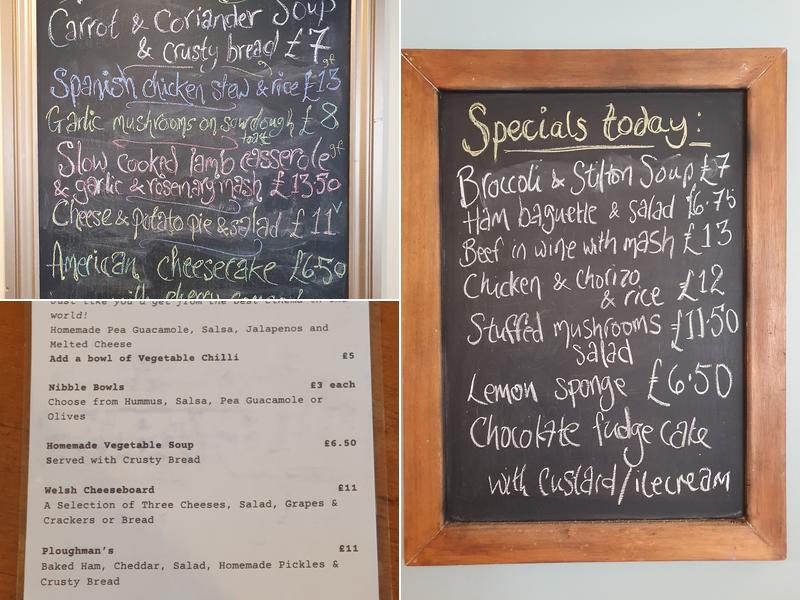 Carrot & Coriander Soup
& crusty bread £7
gf
Spanish chicken stew & rice £13
Garlic mushrooms on sourdough £8
toast
Slow cooked lamb casserole gf
& garlic & rosemary mash £13.50
Cheese & potato pie & salad £11 v
American cheesecake £6.50
Just like you'd get from the best cinema in the
world!
Homemade Pea Guacamole, Salsa, Jalapenos and
Melted Cheese
Add a bowl of Vegetable Chilli £5
Nibble Bowls £3 each
Choose from Hummus, Salsa, Pea Guacamole or
Olives
Homemade Vegetable Soup £6.50
Served with Crusty Bread
Welsh Cheeseboard £11
A Selection of Three Cheeses, Salad, Grapes &
Crackers or Bread
Ploughman's £11
Baked Ham, Cheddar, Salad, Homemade Pickles &
Crusty Bread
Specials today:
Broccoli & Stilton Soup £7
Ham baguette & salad £6.75
Beef in wine with mash £13
Chicken & chorizo
& rice £12
Stuffed mushrooms £11.50
salad
Lemon sponge £6.50
Chocolate fudge cake
with custard/icecream